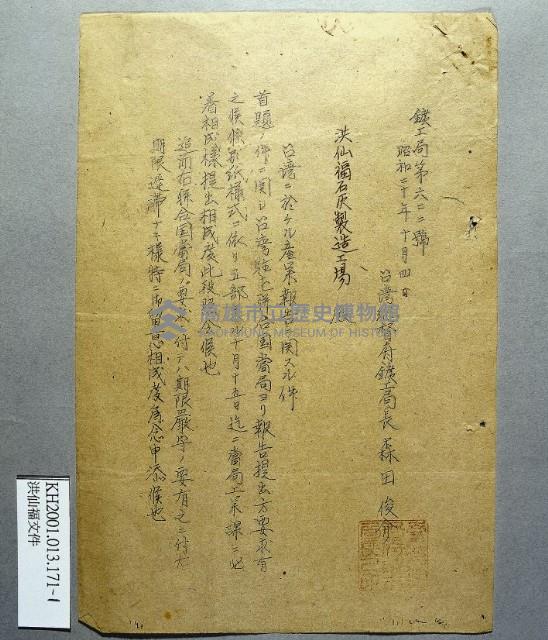 鑛工局第六二二號
昭和二十年十月四日
台灣總督府鑛工局長 森田俊介
洪仙福石灰製造工場
台灣ニ於ケル産業報告ニ關スル件
首題ノ件ニ關シ台灣駐屯聯合國當局ヨリ報告提出方要求有
之候條別紙様式ニ依リ五部 十月十五日迄ニ當局工業課ニ必
着相成様提出相成度此段照會候也
追而右聯合国當局ノ要求ニ付テハ期限嚴守ノ要有之ニ付
期限遅滞ナキ様特ニ御留意相成度為念申添候也
高雄市立歷史博物館
KAOHSIUNG MUSEUM OF HISTORY
KH2001.013.171-1
洪仙福文件